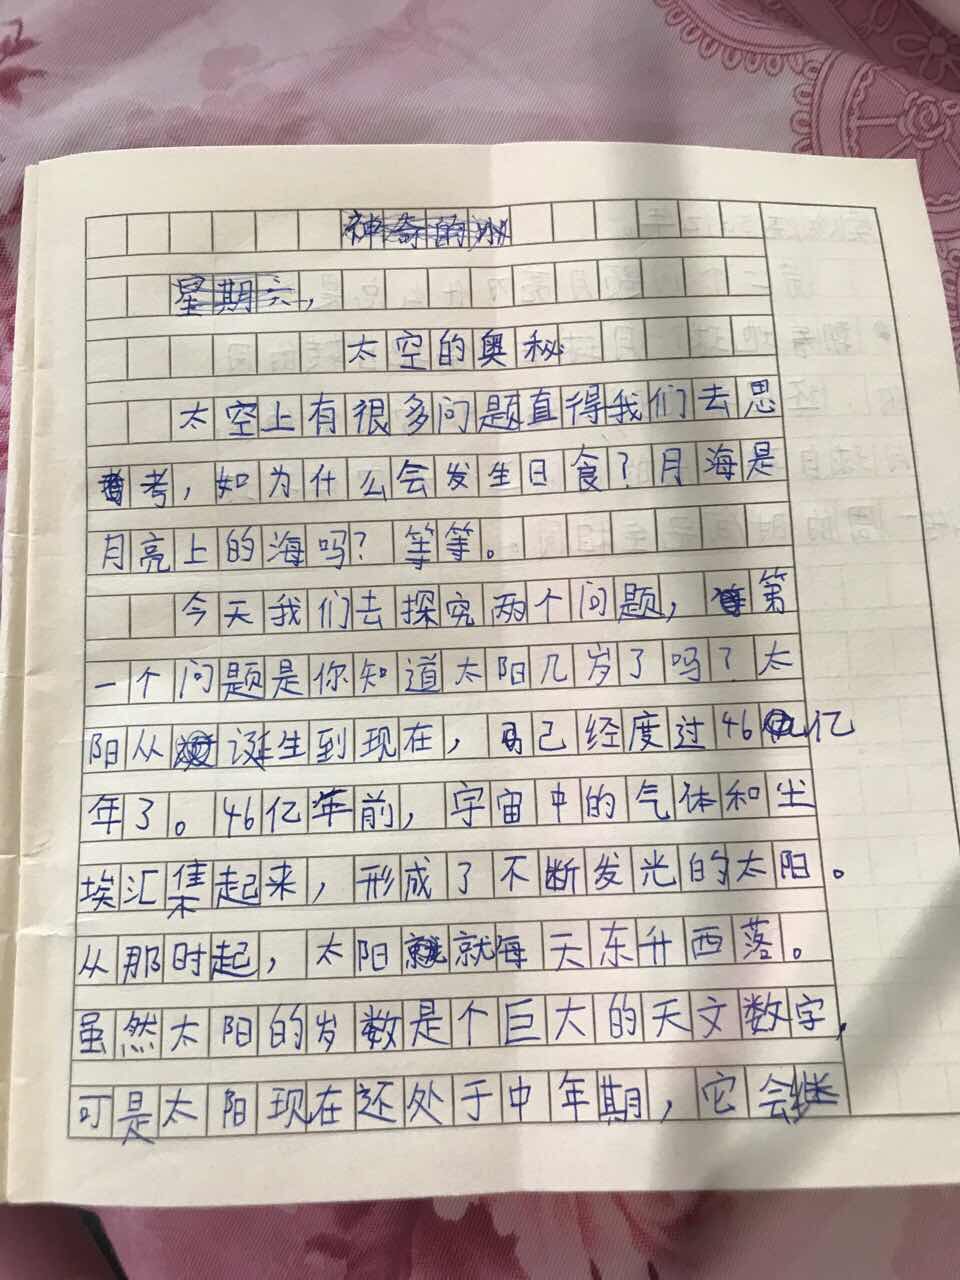 神奇的
星期六,
太空的奥秘
太空上有很多问题直得我们去思
考,如为什么会发生日食?月海是
月亮上的海吗?等等。
今天我们去探究两个问题,第
一个问题是你知道太阳几岁了吗?太
阳从诞生到现在,已经度过46亿
年了。46亿年前,宇宙中的气体和尘
埃汇集起来,形成了不断发光的太阳。
从那时起,太阳就每天东升西落。
虽然太阳的岁数是个巨大的天文数字,
可是太阳现在还处于中年期,它会继